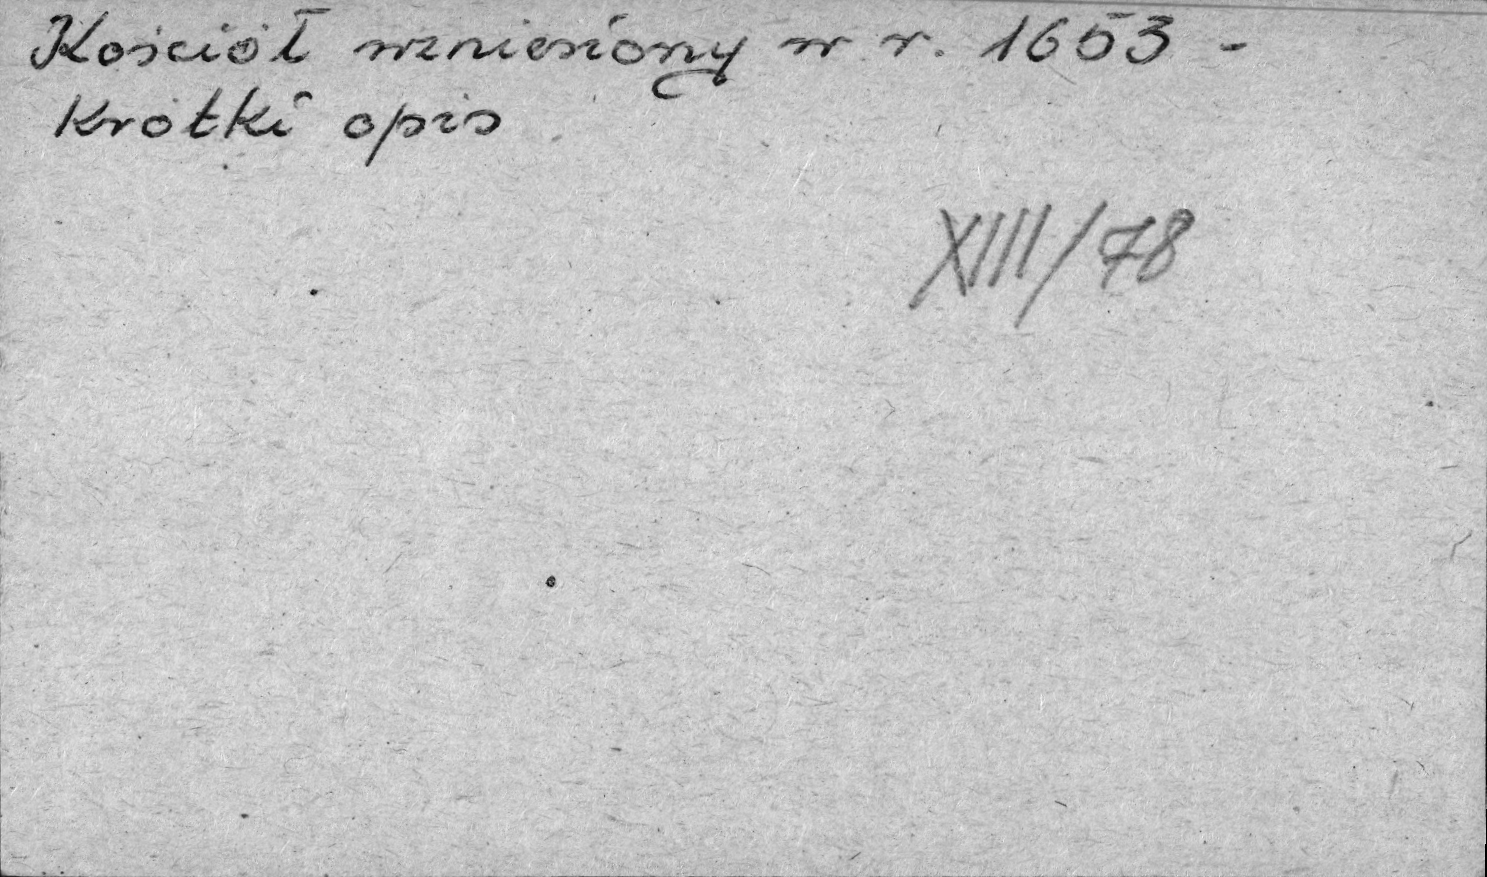 Kościół wzniesiony w r. 1653 -
Krótki opis
XIII/78